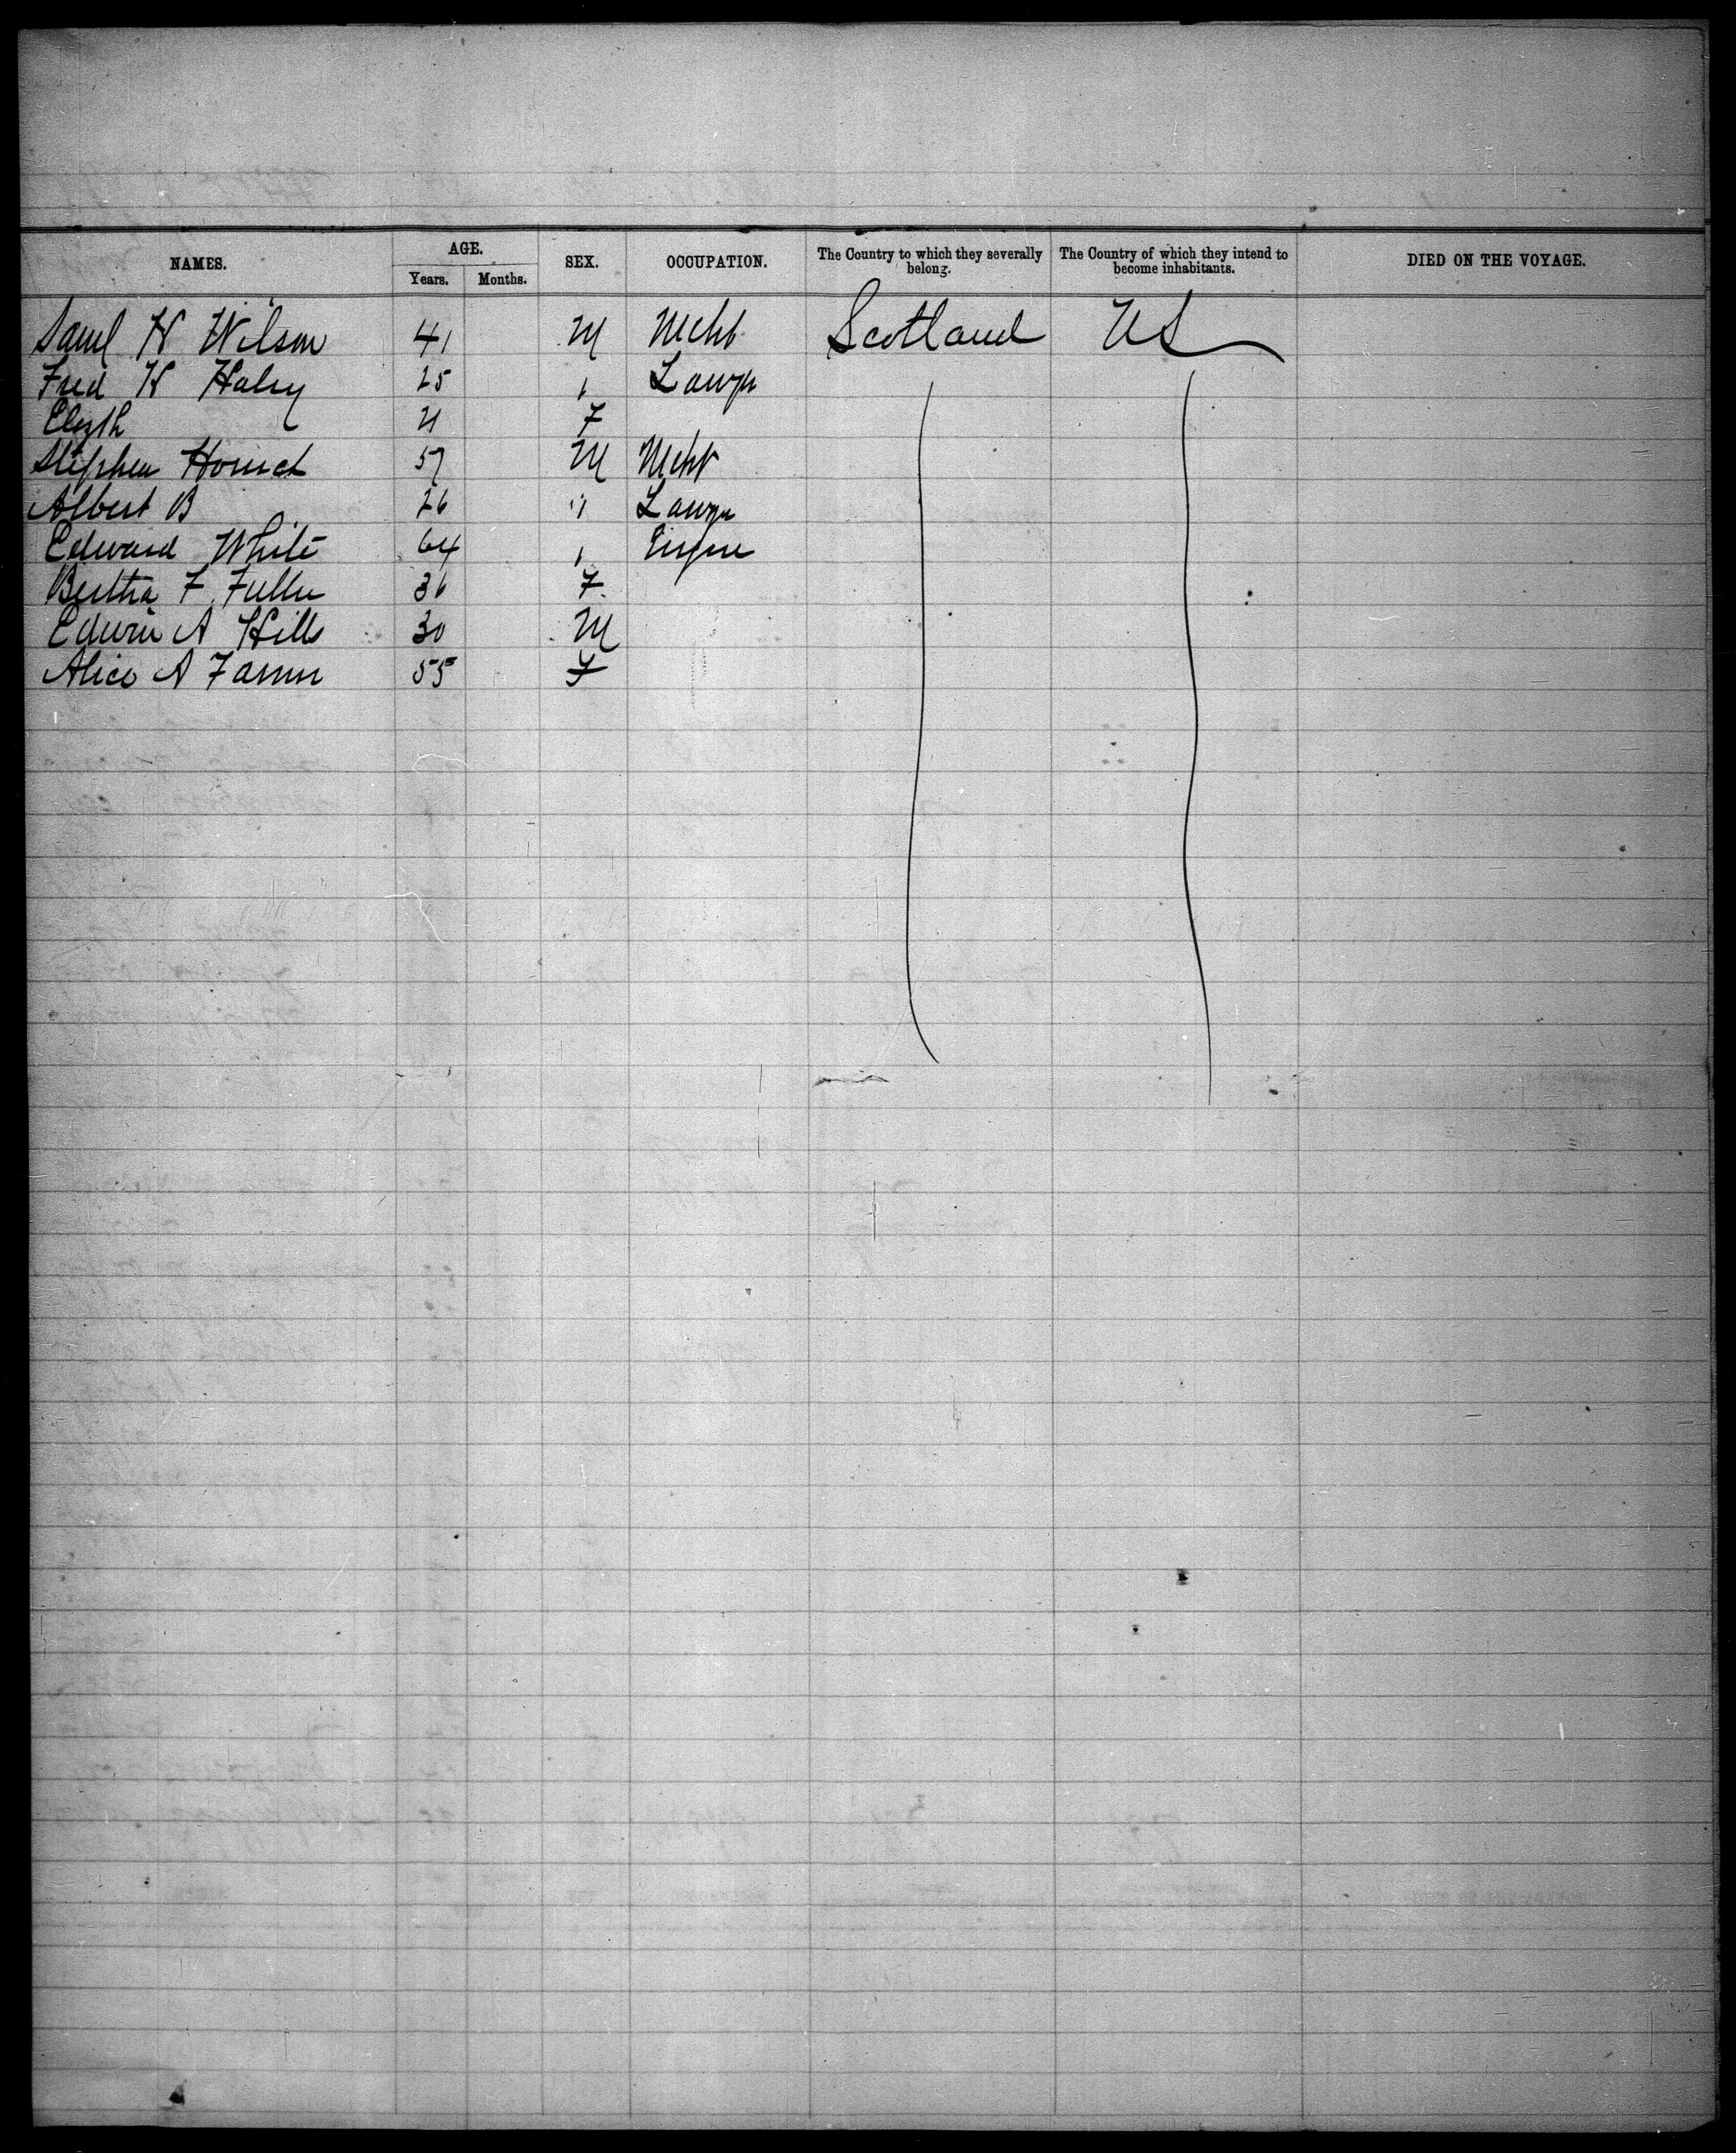 NAMES. AGE. SEX. OCCUPATION. The Country to which they severally belong. The Country of which they intend to become inhabitants. DIED ON THE VOYAGE.
Years. Months.
Saml H Wilson 41 M Mcht Scotland US
Fred H Haley 25 " Lawyr
Elizth 21 F
Stephen 57 M Mcht
Albert B 26 " Lawyr
Edward White 64 "
Bertha F Fuller 36 F
Edwin A Hills 30 M
Alice A 55 F